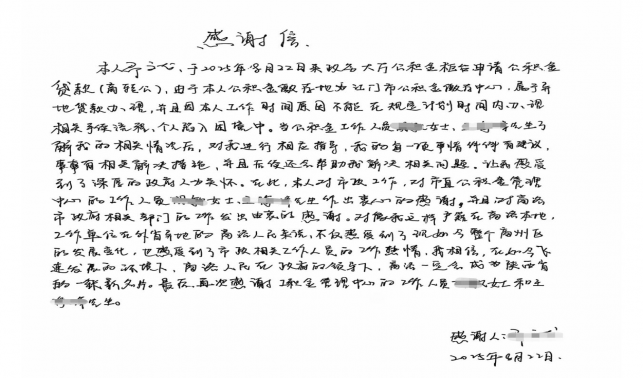 感谢信
本人，于2025年8月22日来政务大厅公积金柜台申请公积金
贷款（商转公），由于本人公积金缴存地为江门市公积金缴存中心，属于异
地贷款办理，并且因本人工作时间原因不能在规定计划时间内办理
相关手续流程，个人陷入困境中。当公积金工作人员女士、先生了
解我的相关情况后，对我进行相应指导，我的每一项事情件件有建议，
事事有相关解决措施，并且后续还会帮助我解决相关问题。让我感受
到了深厚的政府人文关怀。在此，本人对市政工作，对市直公积金管理
中心的工作人员女士、先生作出衷心的感谢。并且对商洛
市政府相关部门的工作发出由衷的感谢。对像我这样户籍在商洛本地，
工作单位在外省异地的商洛人民来说，不仅感受到了现如今整个商州区
的发展变化，也感受到了市政相关工作人员的工作热情，我相信，在如今飞
速发展的环境下，商洛人民在政府的领导下，商洛一定会成为陕西省
的一张新名片。最后，再次感谢公积金管理中心的工作人员女士和
先生。
感谢人：
2025年8月22日.